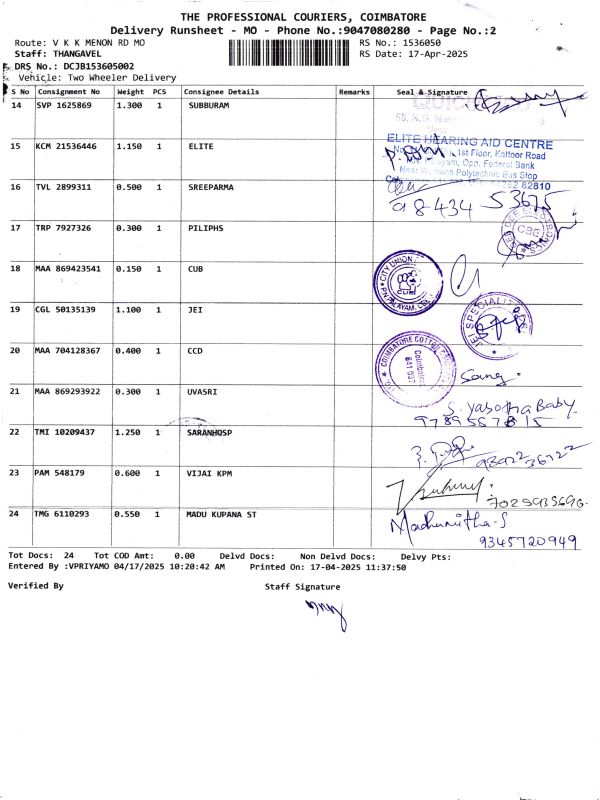 THE PROFESSIONAL COURIERS, COIMBATORE
Delivery Runsheet - MO - Phone No.:9047080280 - Page No.:2
Route: V K K MENON RD MO RS No.: 1536050
Staff: THANGAVEL RS Date: 17-Apr-2025
DRS No.: DCJB153605002
Vehicle: Two Wheeler Delivery
S No Consignment No Weight PCS Consignee Details Remarks Seal & Signature
14 SVP 1625869 1.300 1 SUBBURAM
15 KCM 21536446 1.150 1 ELITE
ELITE HEARING AID CENTRE
1st Floor, Kattoor Road
Opp. Federal Bank
Near Womens Polytechnic Bus Stop
82810
16 TVL 2899311 0.500 1 SREEPARMA
98434 53675
17 TRP 7927326 0.300 1 PILIPHS
CBE
18 MAA 869423541 0.150 1 CUB
CITY UNION
19 CGL 50135139 1.100 1 JEI
JEI SPECIALITY
20 MAA 704128367 0.400 1 CCD
COIMBATORE COTTO
Coimbatore
641 037
21 MAA 869293922 0.300 1 UVASRI
S. Yasotha Baby.
22 TMI 10209437 1.250 1 SARANHOSP
23 PAM 548179 0.600 1 VIJAI KPM
24 TMG 6110293 0.550 1 MADU KUPANA ST
Madhumitha-S
9345720949
Tot Docs: 24 Tot COD Amt: 0.00 Delvd Docs: Non Delvd Docs: Delvy Pts:
Entered By :VPRIYAMO 04/17/2025 10:20:42 AM Printed On: 17-04-2025 11:37:50
Verified By Staff Signature